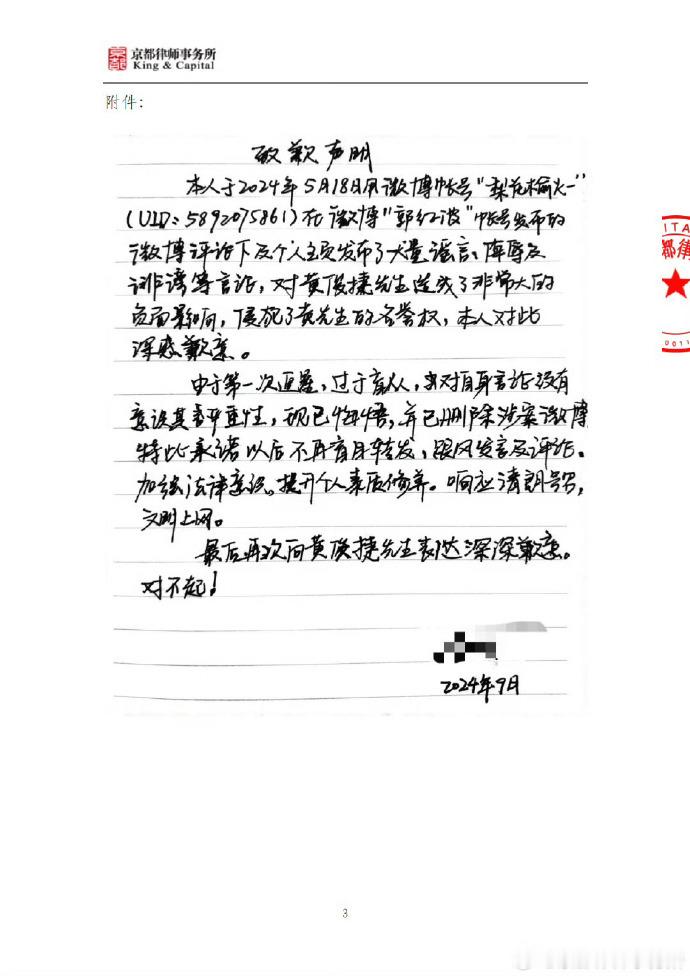 京都律师事务所
King & Capital
附件:
致歉声明
本人于2024年5月18日用微博帐号"梨花榆火一"
(UID:5892075861)在微博"郭红波"帐号发布的
微博评论下及个人主页发布了大量谣言、侮辱及
诽谤等言论,对黄俊捷先生造成了非常大的
负面影响,侵犯了黄先生的名誉权,本人对此
深感歉意。
由于第一次追星,过于盲从,对自身言论没有
意识其严重性,现已悔悟,并已删除涉案微博
特此承诺以后不再盲目转发,跟风发言及评论。
加强法律意识。提升个人素质修养。响应清朗号召,
文明上网。
最后再次向黄俊捷先生表达深深歉意。
对不起!
2024年9月
3